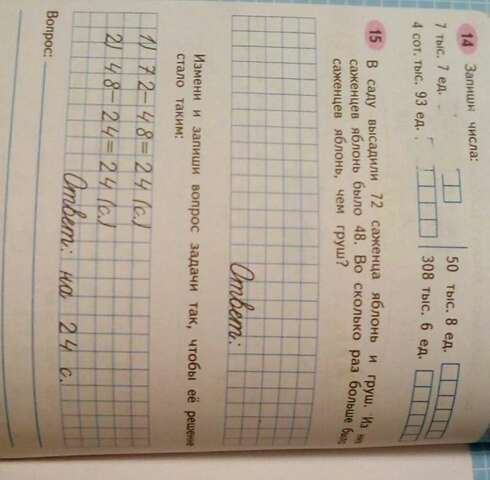 14 Запиши числа:
7 тыс. 7 ед. 50 тыс. 8 ед.
4 сот. тыс. 93 ед. 308 тыс. 6 ед.
15 В саду высадили 72 саженца яблонь и груш. Из
саженцев яблонь было 48. Во сколько раз больше было
саженцев яблонь, чем груш?
Ответ:
Измени и запиши вопрос задачи так, чтобы её решение
стало таким:
1) 72-48=24 (с.)
2) 48-24=24 (с.)
Ответ: на 24 с.
Вопрос: